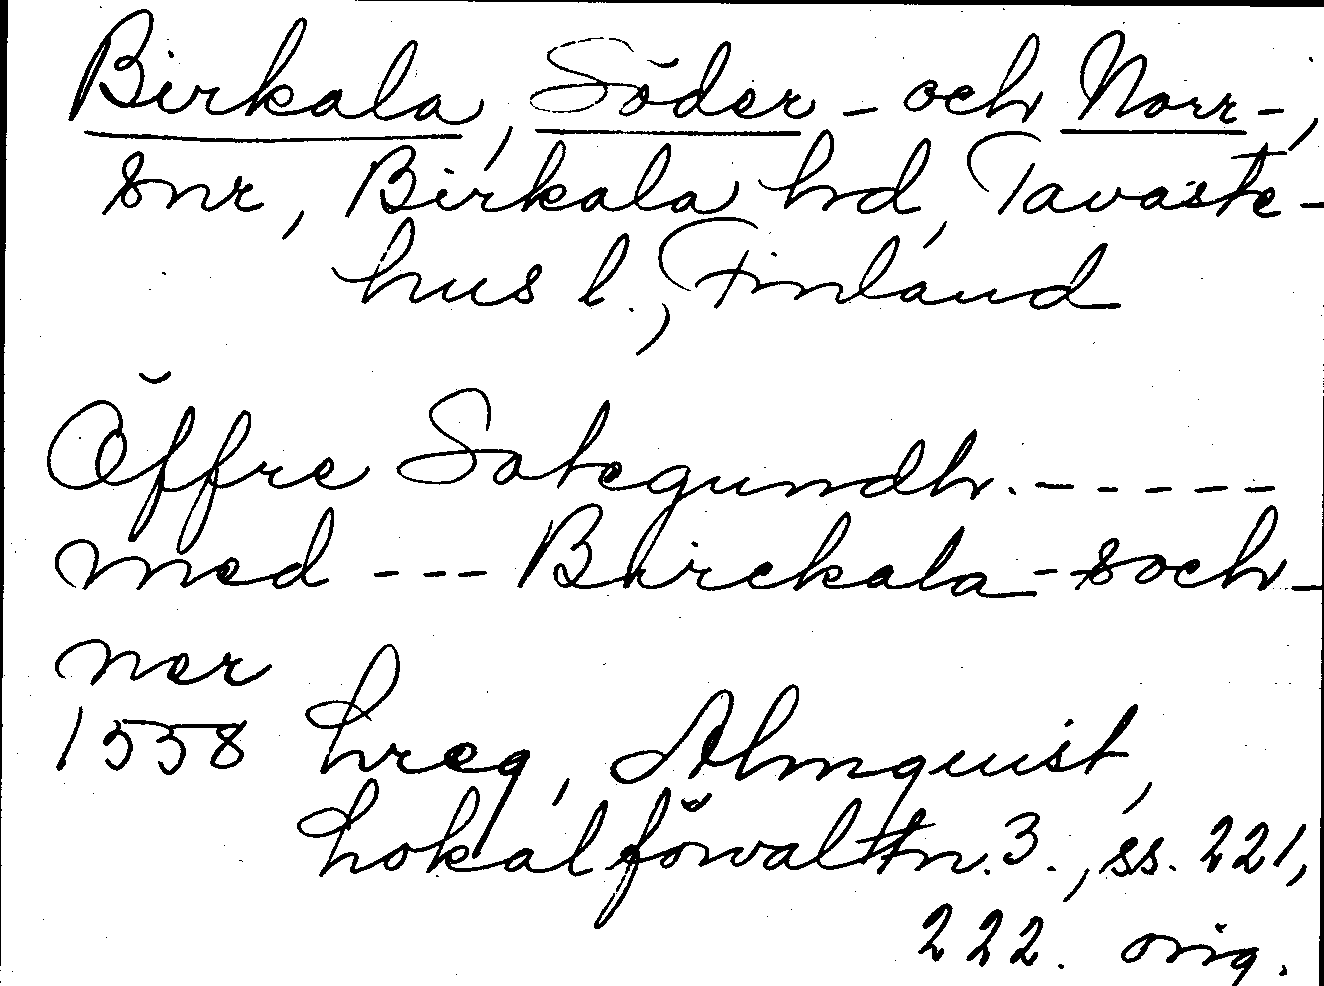 Birkala, Söder- och Norr-,
snr, Birkala hd, Tavaste-
hus l., Finland
Öffre Sategundh. -----
med --- Birckala - soch-
ner
1558 Lreg, Almquist,
Lokalförvaltn. 3., ss. 221,
222. orig.